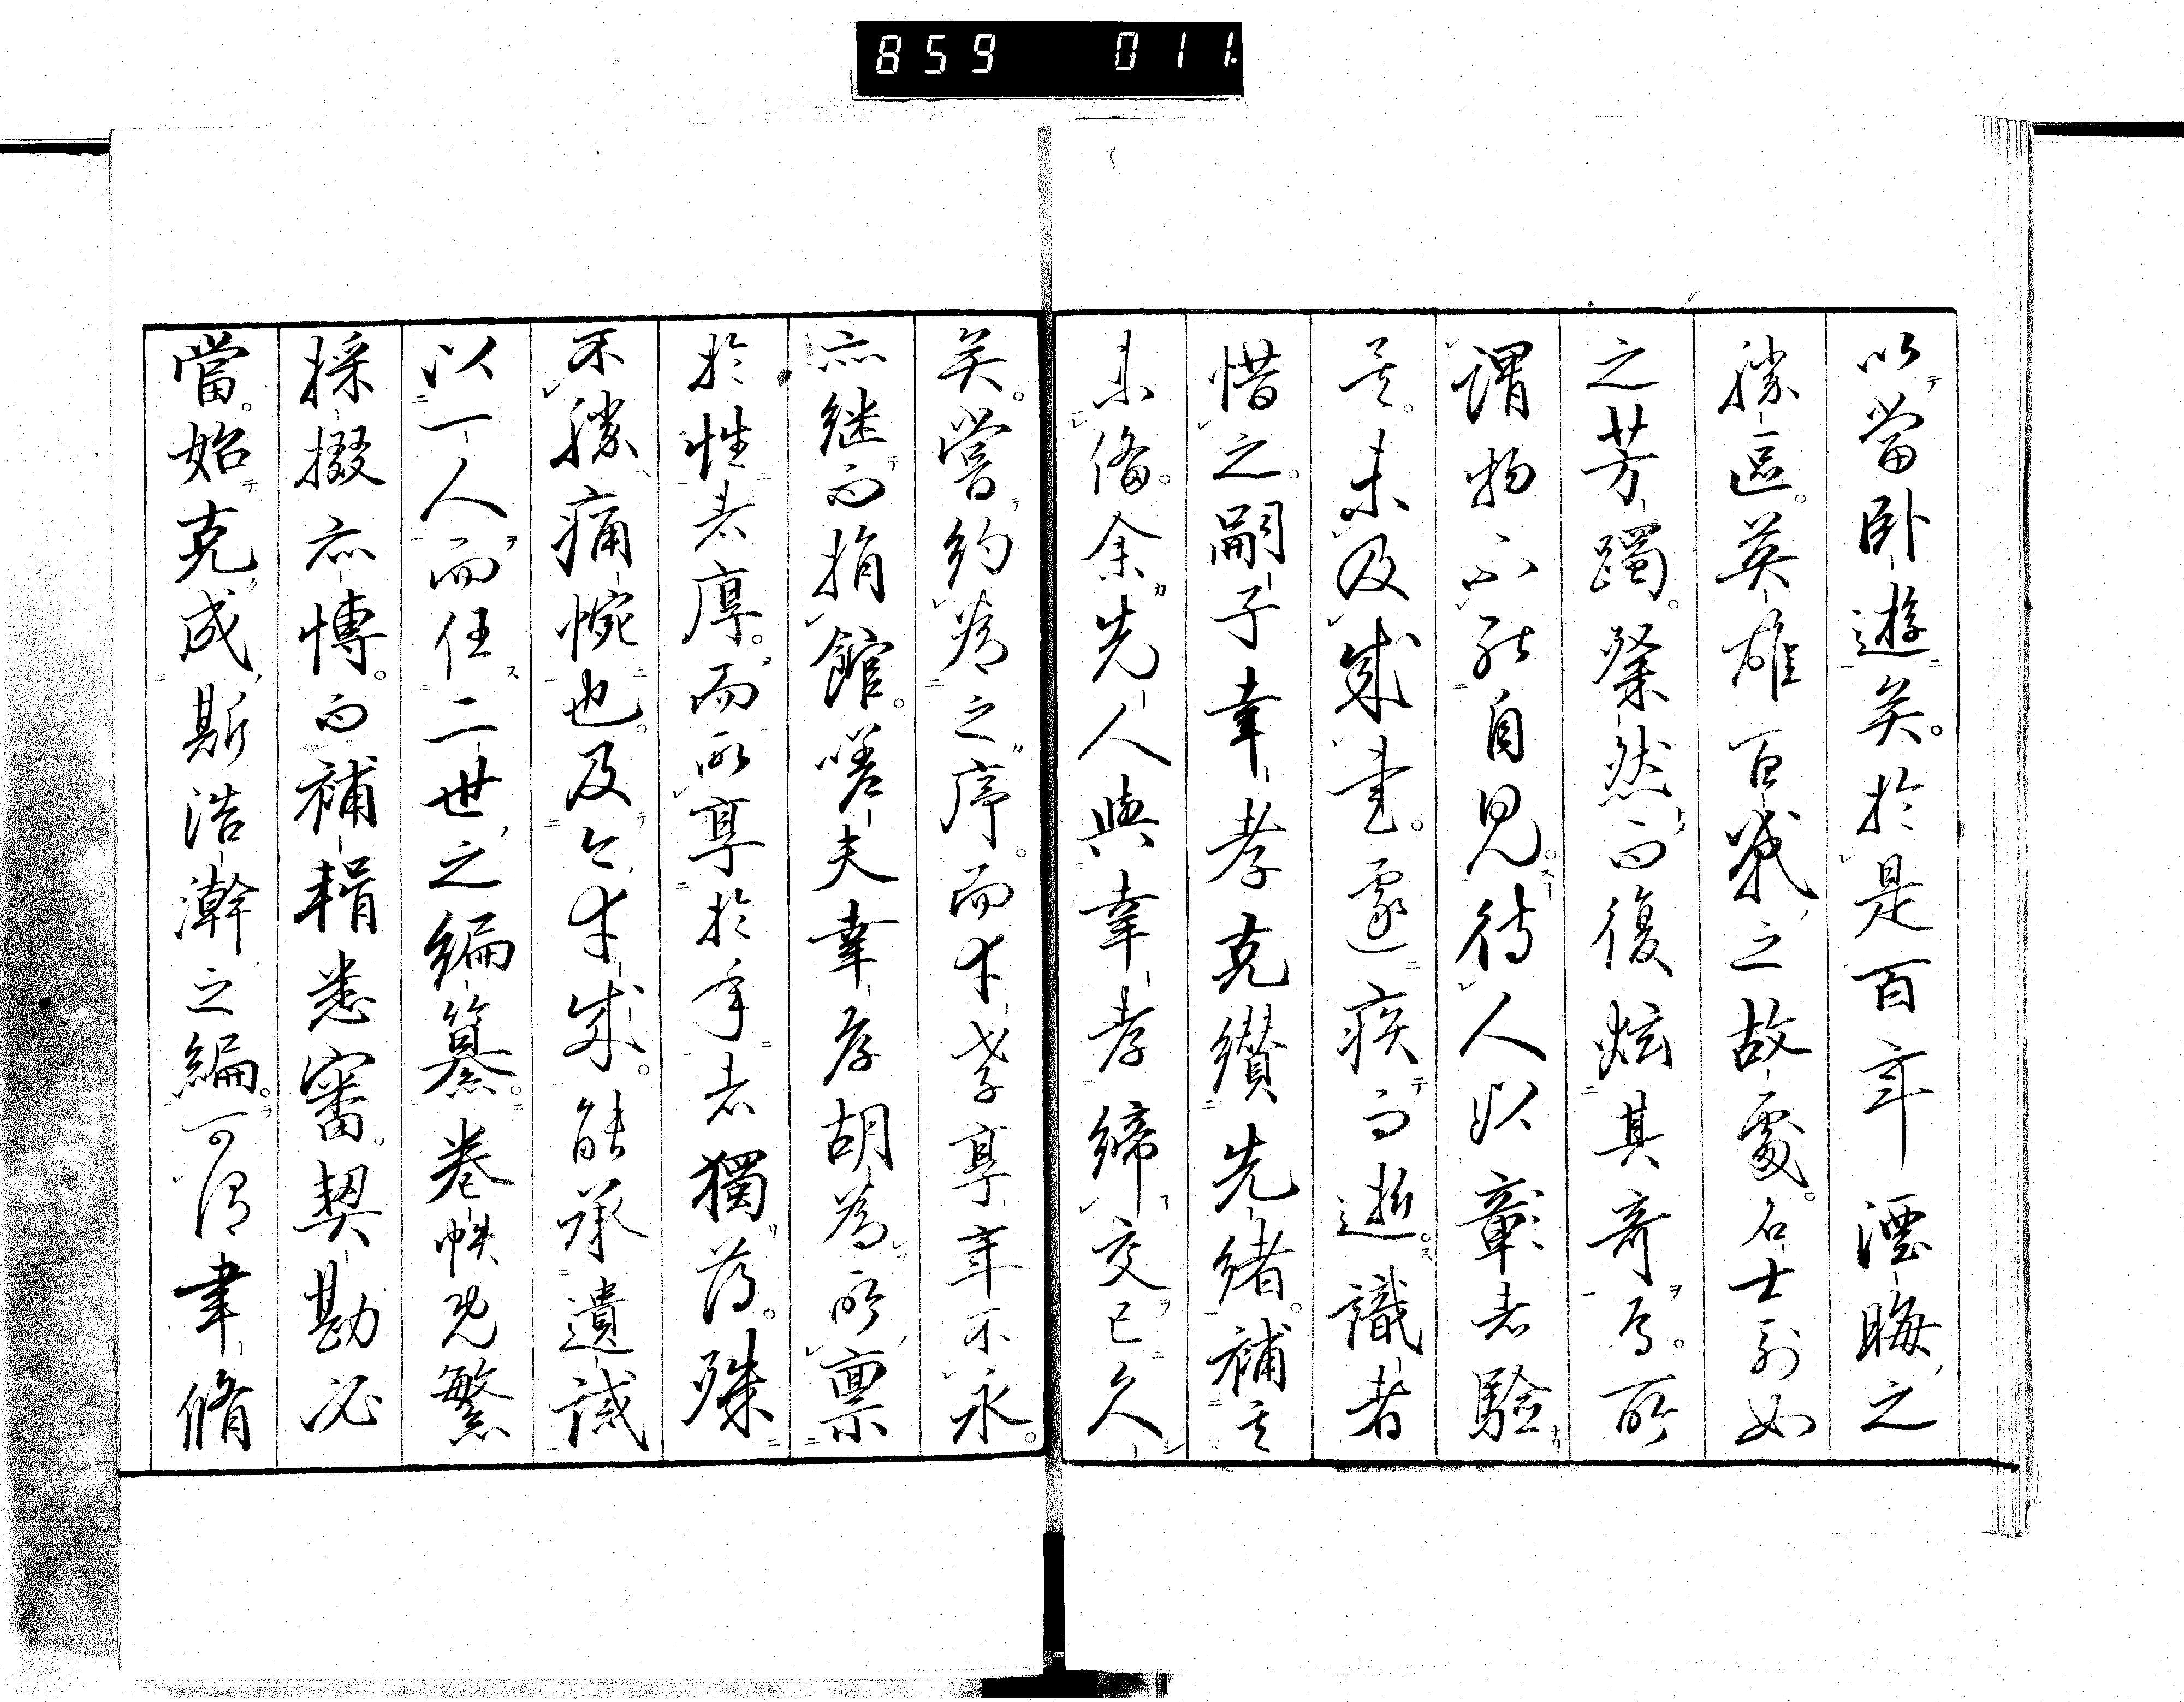 859 011
以當臥遊矣。於是百年湮晦之
勝區。英雄百戰之故處。名士列女
之芳躅。粲然而復炫其奇焉。所
謂物不能自見。待人以彰者驗
矣。未及成書。遽疾而逝。識者
惜之。嗣子幸孝克纘先緒。補其
未備。余先人與幸孝締交已久
矣。嘗約為之序。而幸孝享年不永。
亦継而捐館。嗟夫幸存胡為所稟
於性者厚。而所享於年者獨薄。殊
不勝痛惋也。及今幸成。能承遺誡
以一人而任二世之編纂。卷帙既繁
採掇亦博。而補輯悉審。契勘必
當。始克成斯浩瀚之編。可謂聿脩